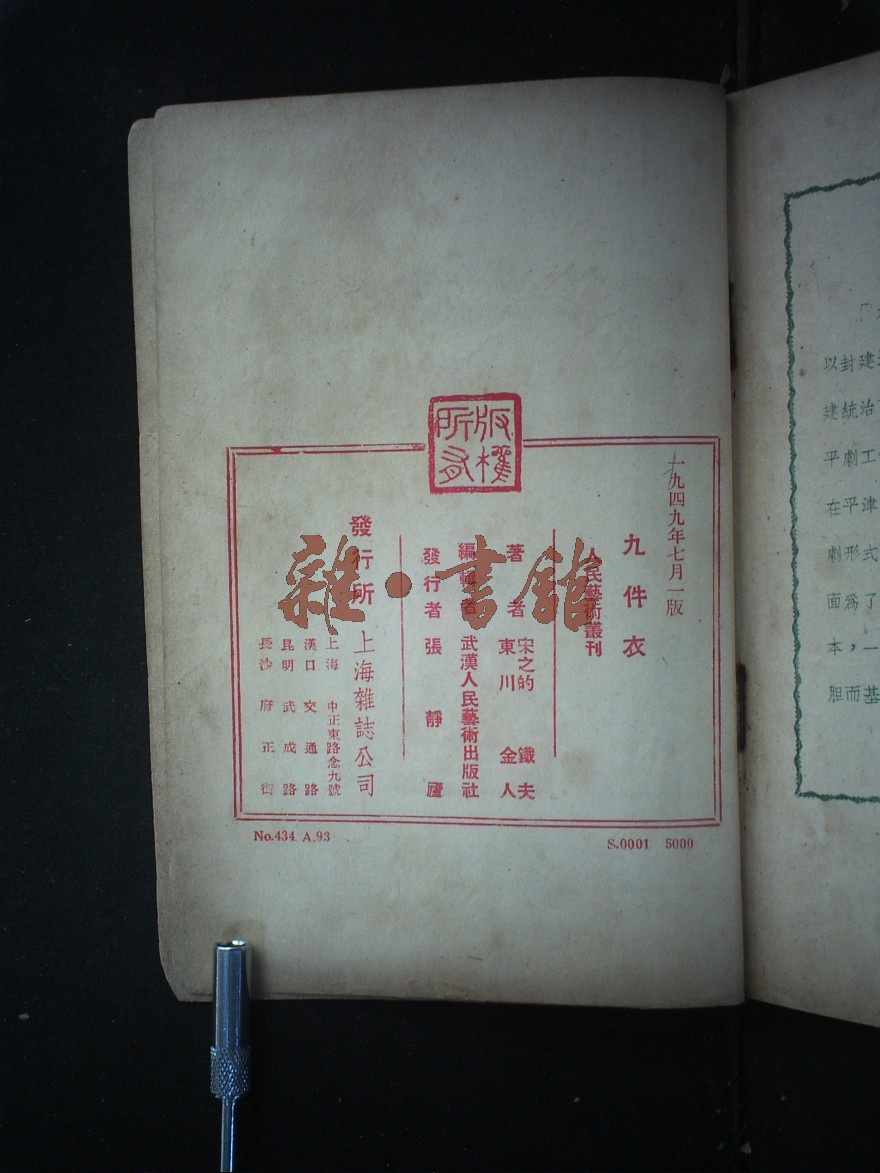 版權
所有
一九四九年七月一版
九件衣
人民藝術叢刊
著者 宋之的 鐵夫
東川 金人
編輯者 武漢人民藝術出版社
發行者 張靜廬
發行所 上海雜誌公司
上海 中正東路念九號
漢口 交通路
昆明 武成路
長沙 府正街
No.434 A.93
S.0001 5000
雜·書館
以封建
建統治
平劇工
在平津
劇形式
面爲了
本，一
胆而基